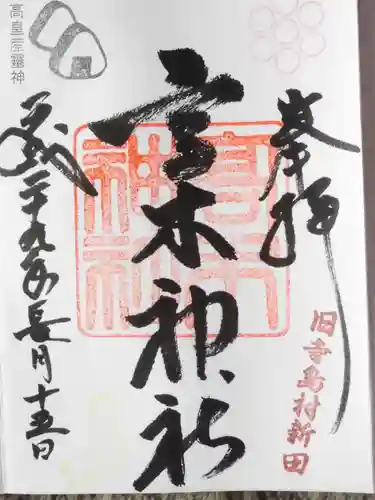 奉拝
旧寺島村新田
高木神社
高木神社
高皇産霊神
平成二十九年長月十五日